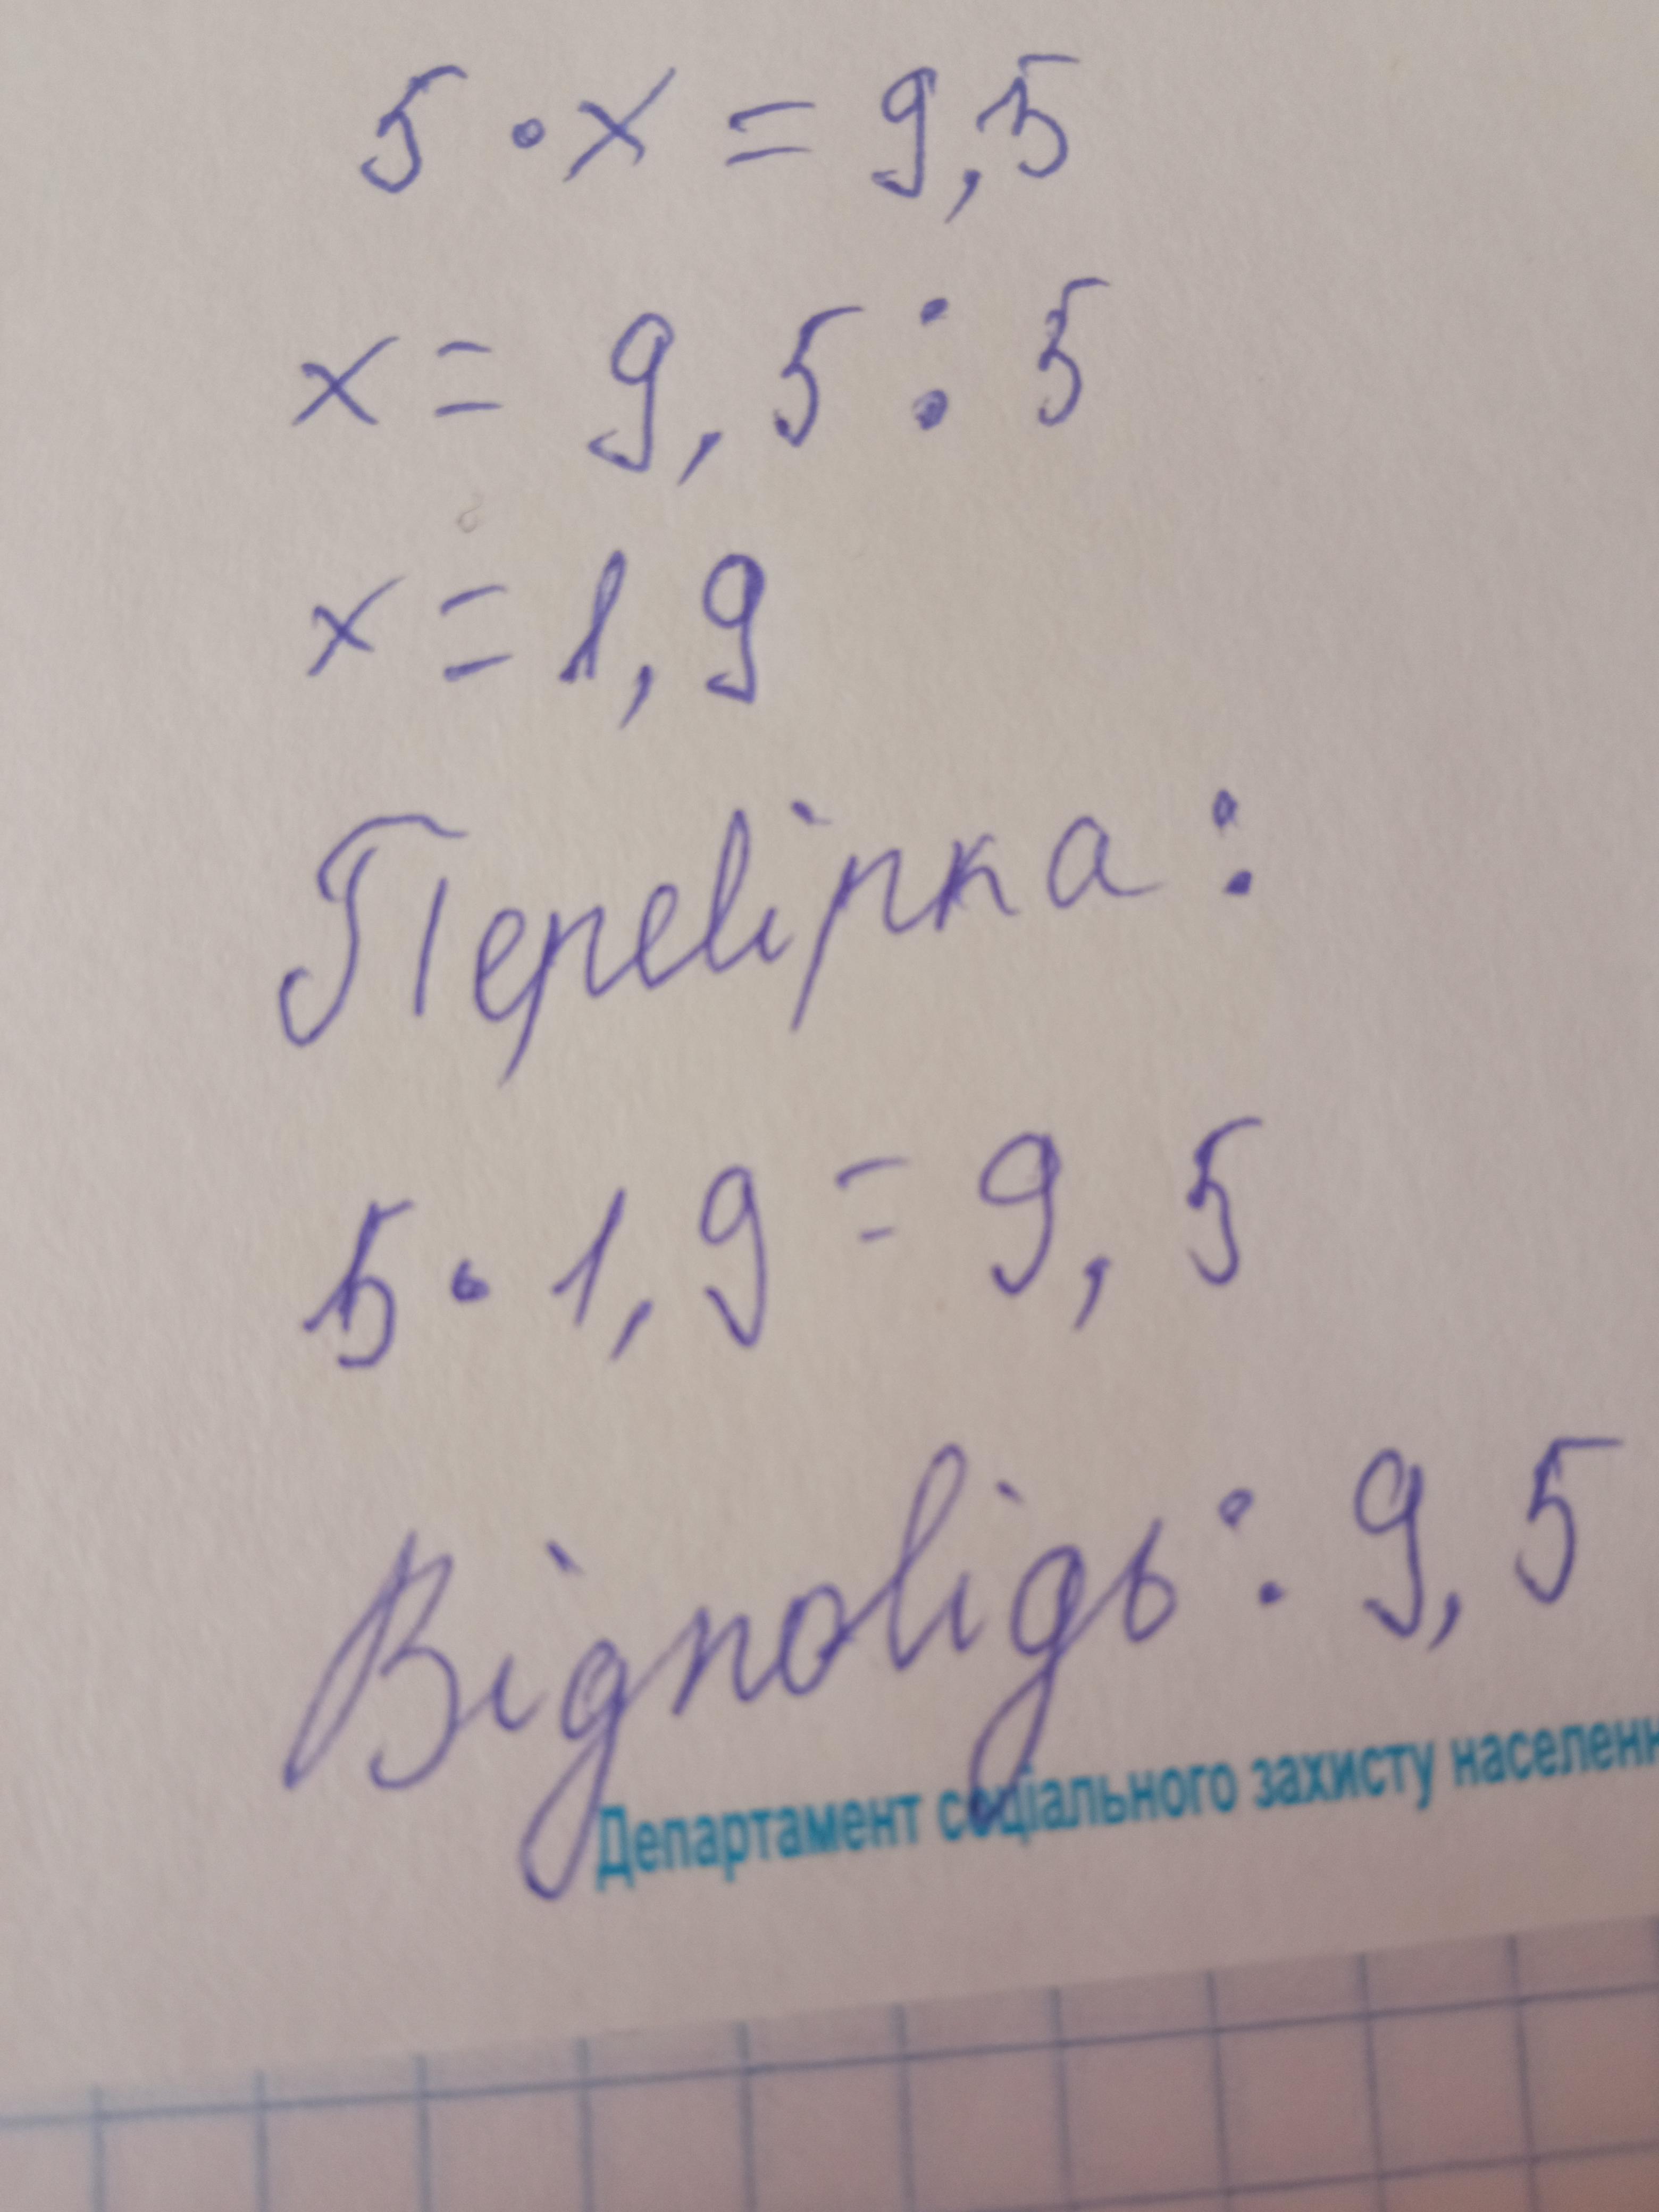 5 · x = 9,5
x = 9,5 : 5
x = 1,9
Перевірка:
5 · 1,9 = 9,5
Відповідь: 9,5
Департамент соціального захисту населенн